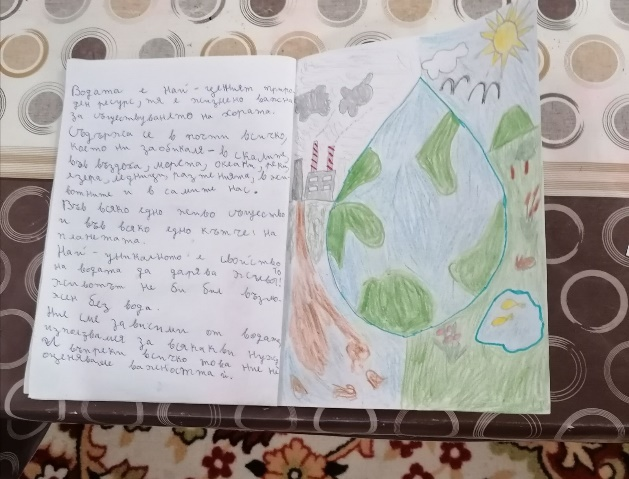 Водата е най-ценният приро-
ден ресурс, тя е жизнено важна
за съществуването на хората.
Съдържа се в почти всичко,
което ни заобикаля - в скалите,
във въздуха, морета, океани, реки
езера, ледници, растенията, в жи-
вотните и в самите нас.
Във всяко едно живо същество
и във всяко едно кътче на
планетата.
Най-уникалното е свойство
то
на водата да дарява живот!
Животът не би бил възмо-
жен без вода.
Ние сме зависими от водата
използваме за всякакви нужд
И въпреки всичко това ние не
оценяваме важността ѝ.